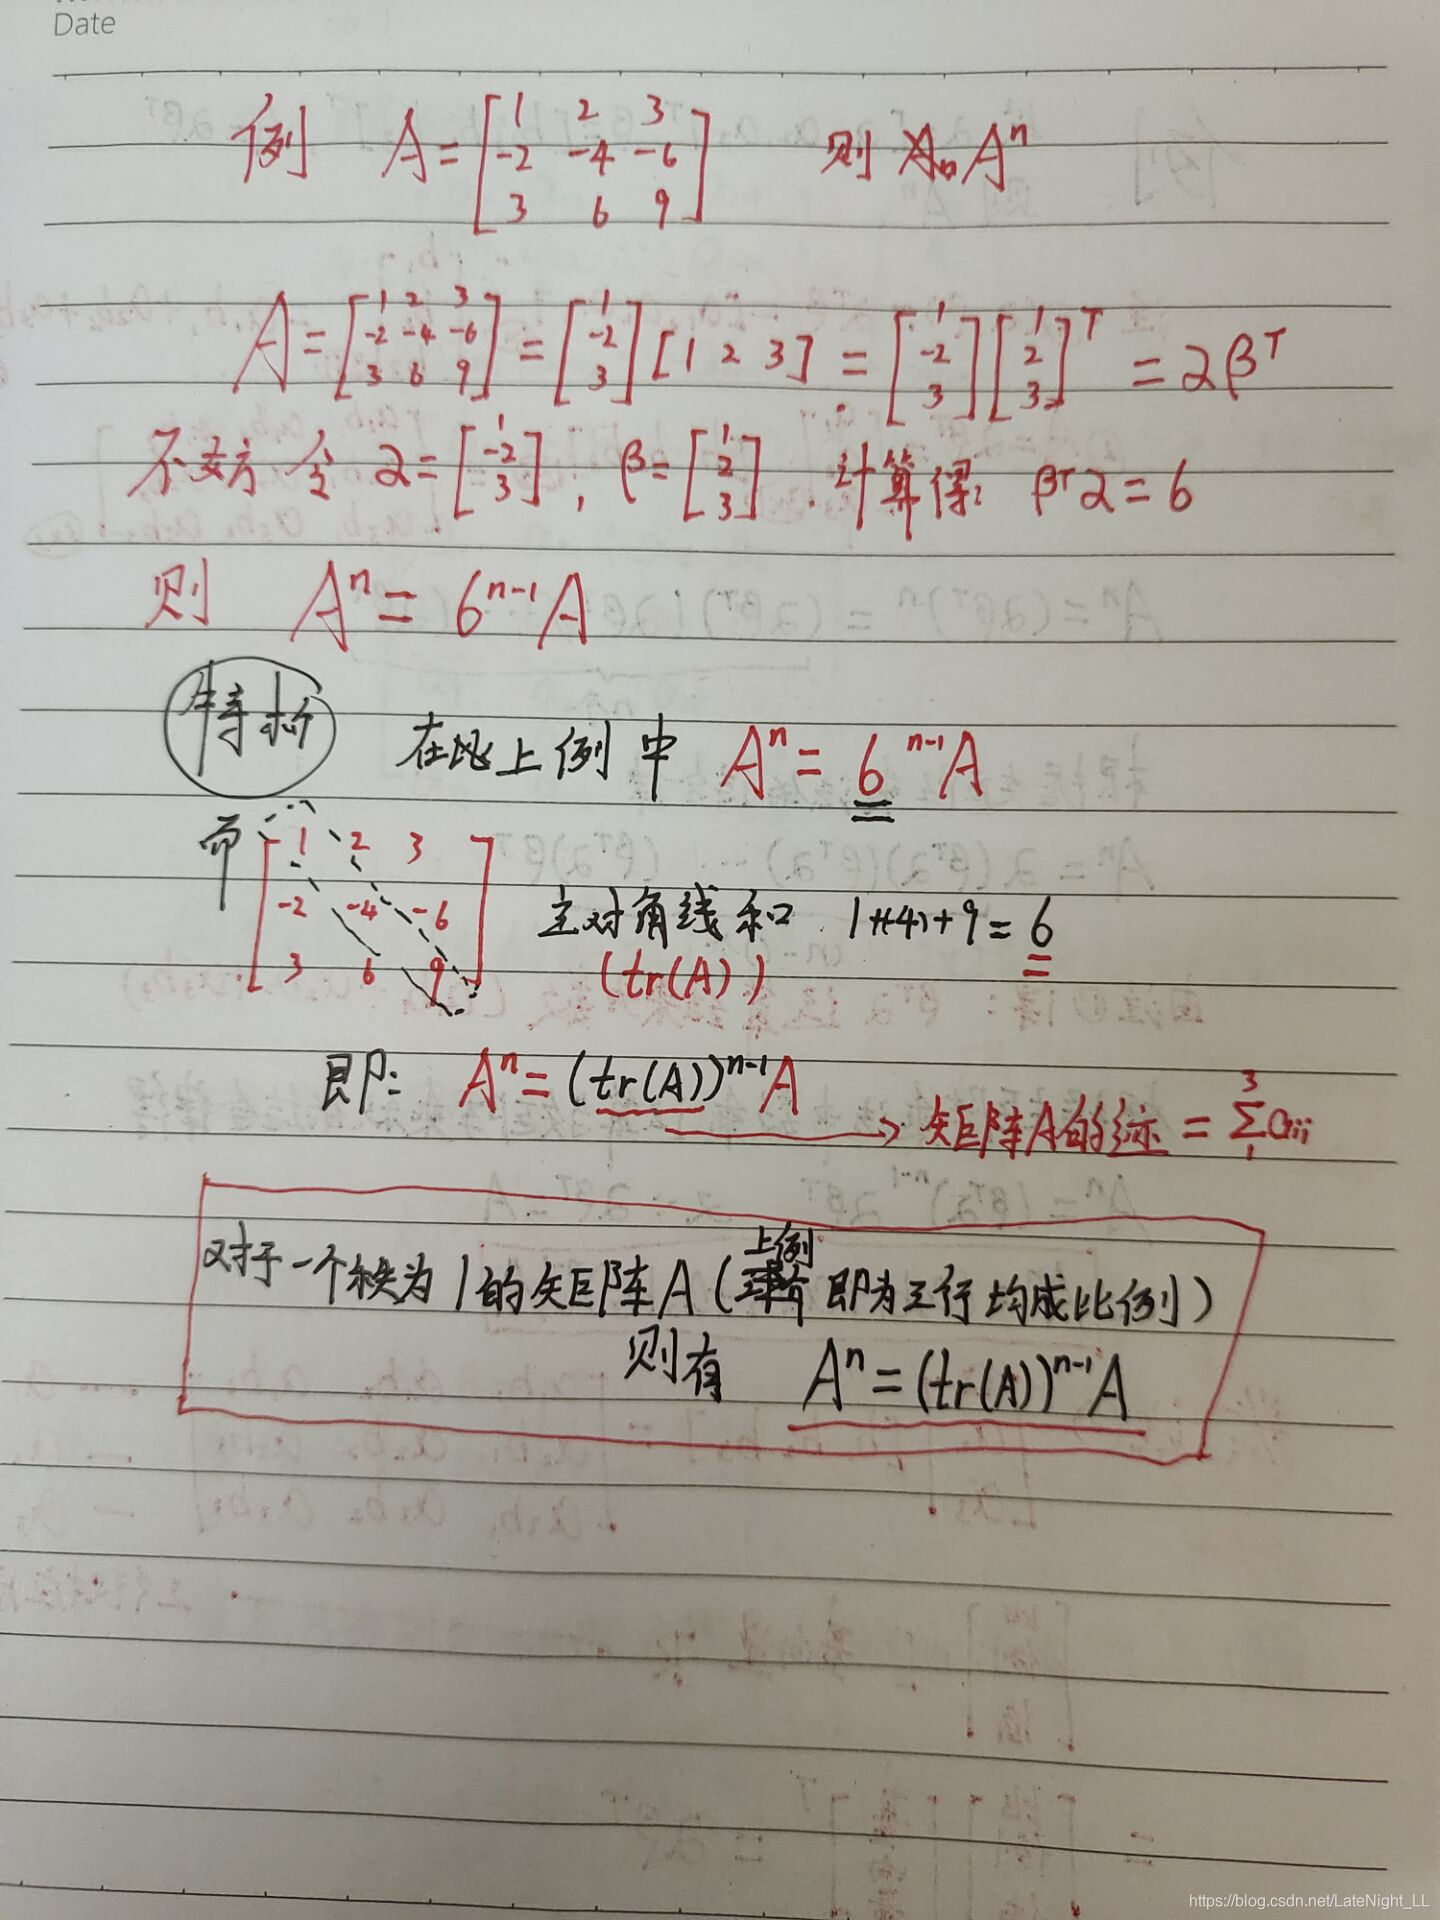 Date
例 A = [1 2 3; -2 -4 -6; 3 6 9] 则 Aⁿ
A = [1 2 3; -2 -4 -6; 3 6 9] = [1; -2; 3] [1 2 3] = [1; -2; 3] [1; 2; 3]ᵀ = αβᵀ
不妨令 α = [1; -2; 3], β = [1; 2; 3] 计算得: βᵀα = 6
则 Aⁿ = 6ⁿ⁻¹A
特折 在此上例中 Aⁿ = 6ⁿ⁻¹A
而 [1 2 3; -2 -4 -6; 3 6 9] 主对角线和 1+(-4)+9 = 6
(tr(A))
即: Aⁿ = (tr(A))ⁿ⁻¹A
→ 矩阵A的迹 = ∑₁³ aᵢᵢ
对于一个秩为1的矩阵A(上例即为三行均成比例)
则有 Aⁿ = (tr(A))ⁿ⁻¹A
https://blog.csdn.net/LateNight_LL